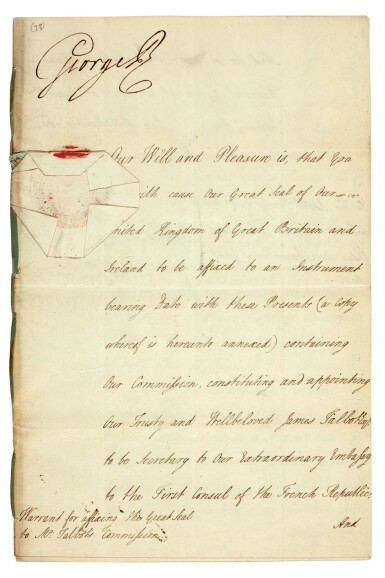 (78)
George R
Our Will and Pleasure is, that You
with cause Our Great Seal of Our
United Kingdom of Great Britain and
Ireland to be affixed to an Instrument
bearing Date with these Presents (a Copy
whereof is hereunto annexed) containing
Our Commission, constituting and appointing
Our Trusty and Wellbeloved James Talbot Esqr
to be Secretary to Our Extraordinary Embassy
to the First Consul of the French Republic.
And
Warrant for affixing the Great Seal
to Mr. Talbots Commission.